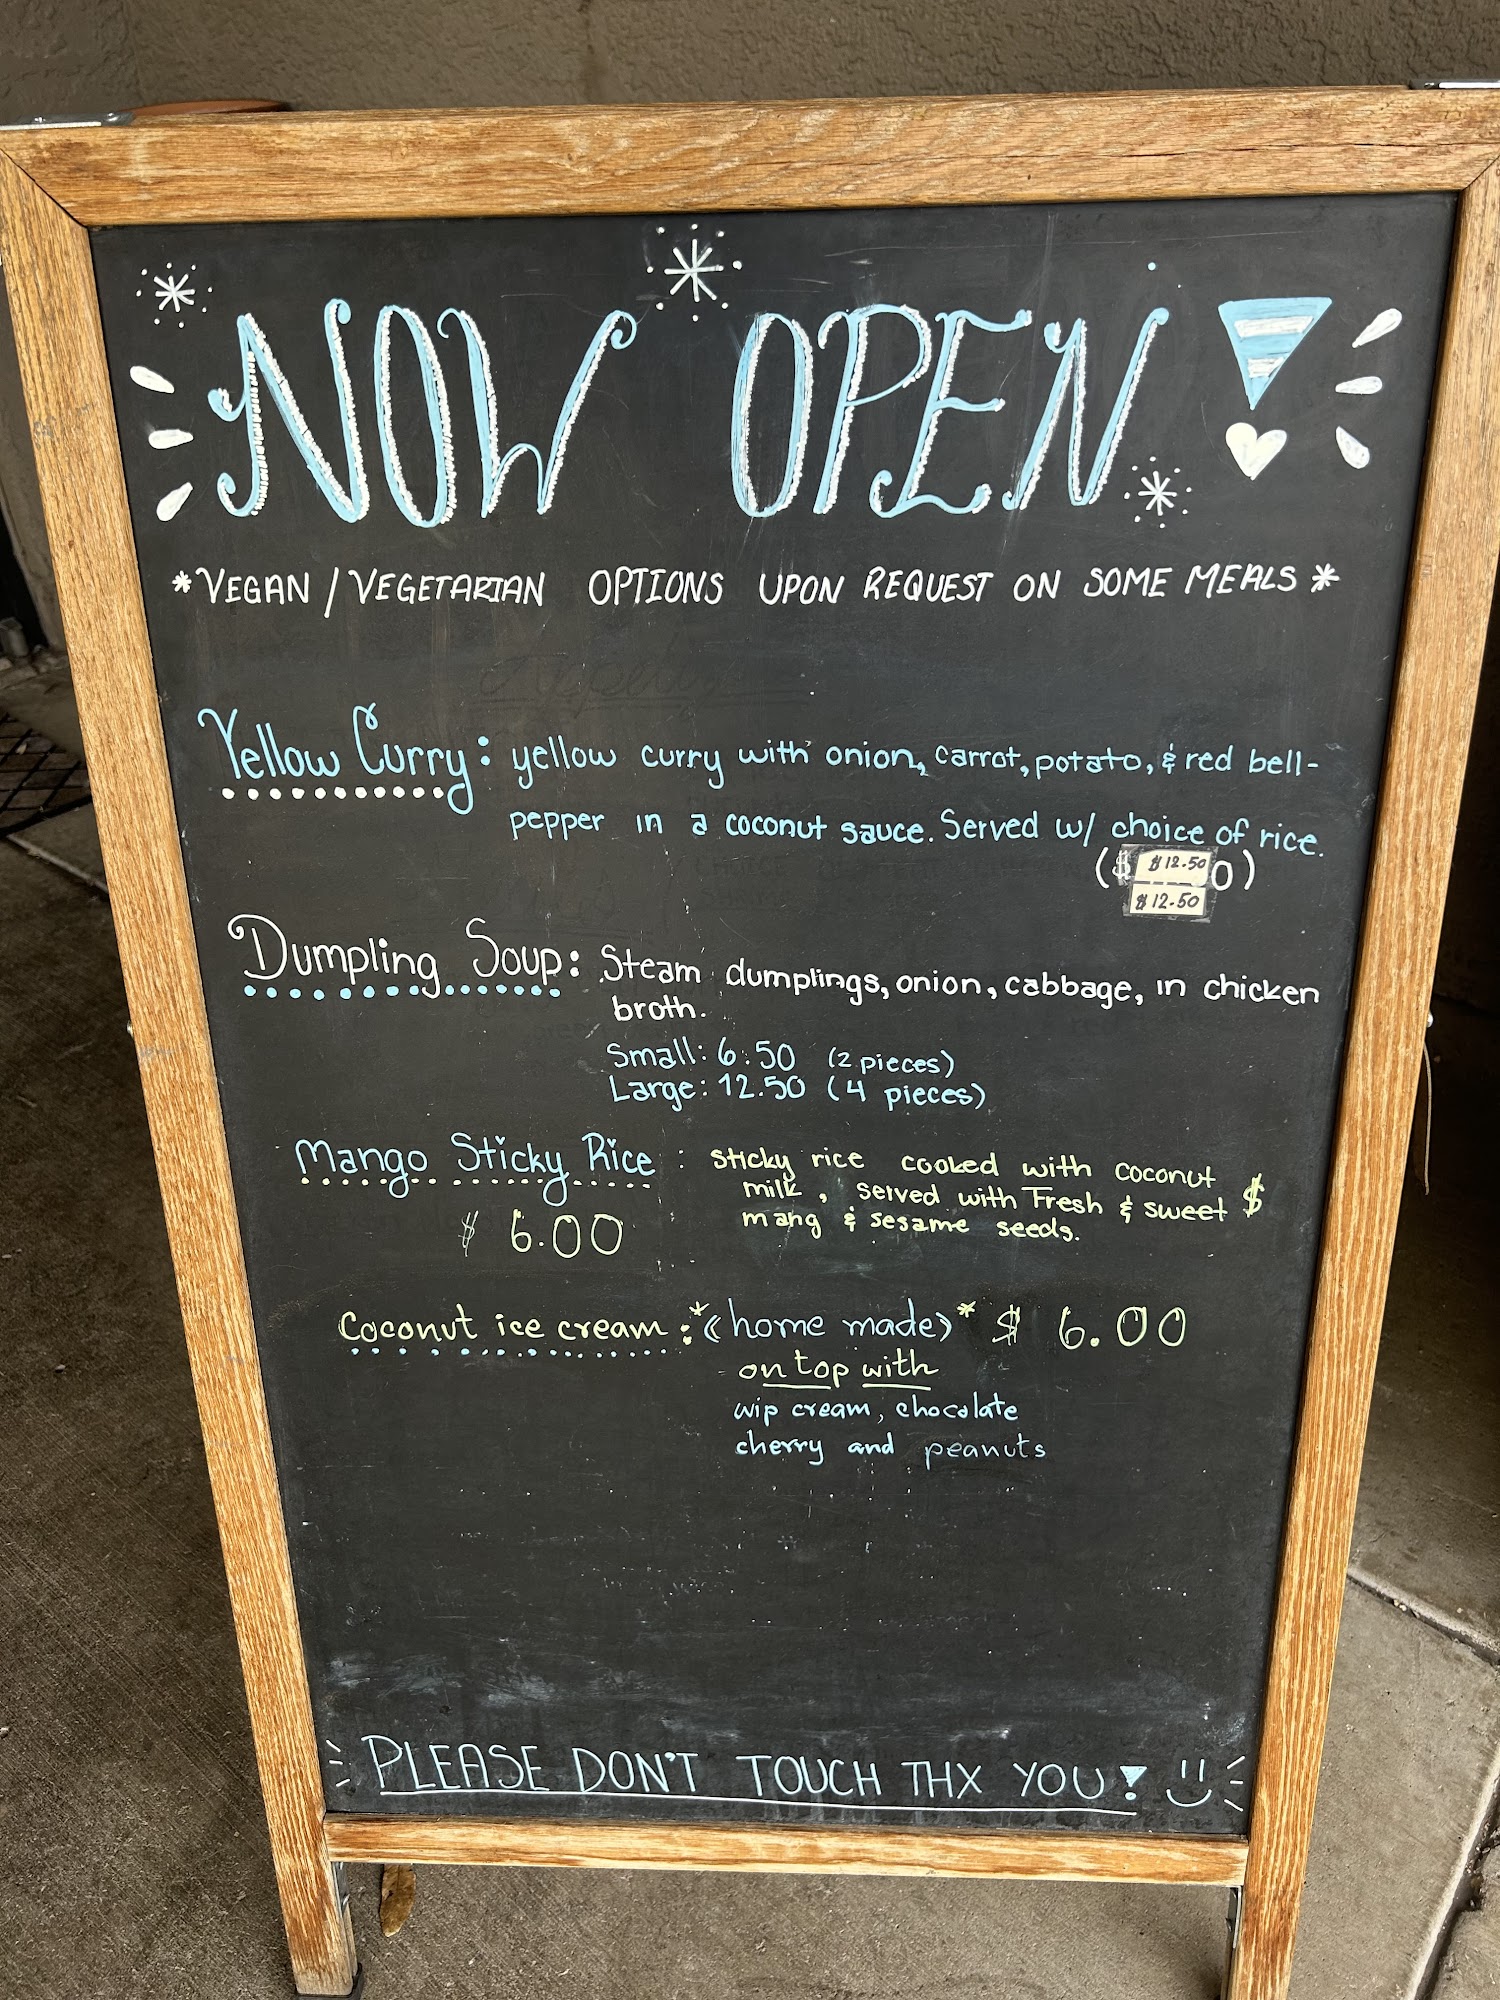 NOW OPEN!
*VEGAN/VEGETARIAN OPTIONS UPON REQUEST ON SOME MEALS*
Yellow Curry: yellow curry with onion, carrot, potato, & red bell-
pepper in a coconut sauce. Served w/ choice of rice.
($ $12.50 0)
$12.50
Dumpling Soup: Steam dumplings, onion, cabbage, in chicken
broth.
Small: 6.50 (2 pieces)
Large: 12.50 (4 pieces)
Mango Sticky Rice: sticky rice cooked with coconut
milk, served with Fresh & sweet $
mang & sesame seeds.
$ 6.00
Coconut ice cream: *(home made)* $ 6.00
on top with
wip cream, chocolate
cherry and peanuts
PLEASE DON'T TOUCH THX YOU!